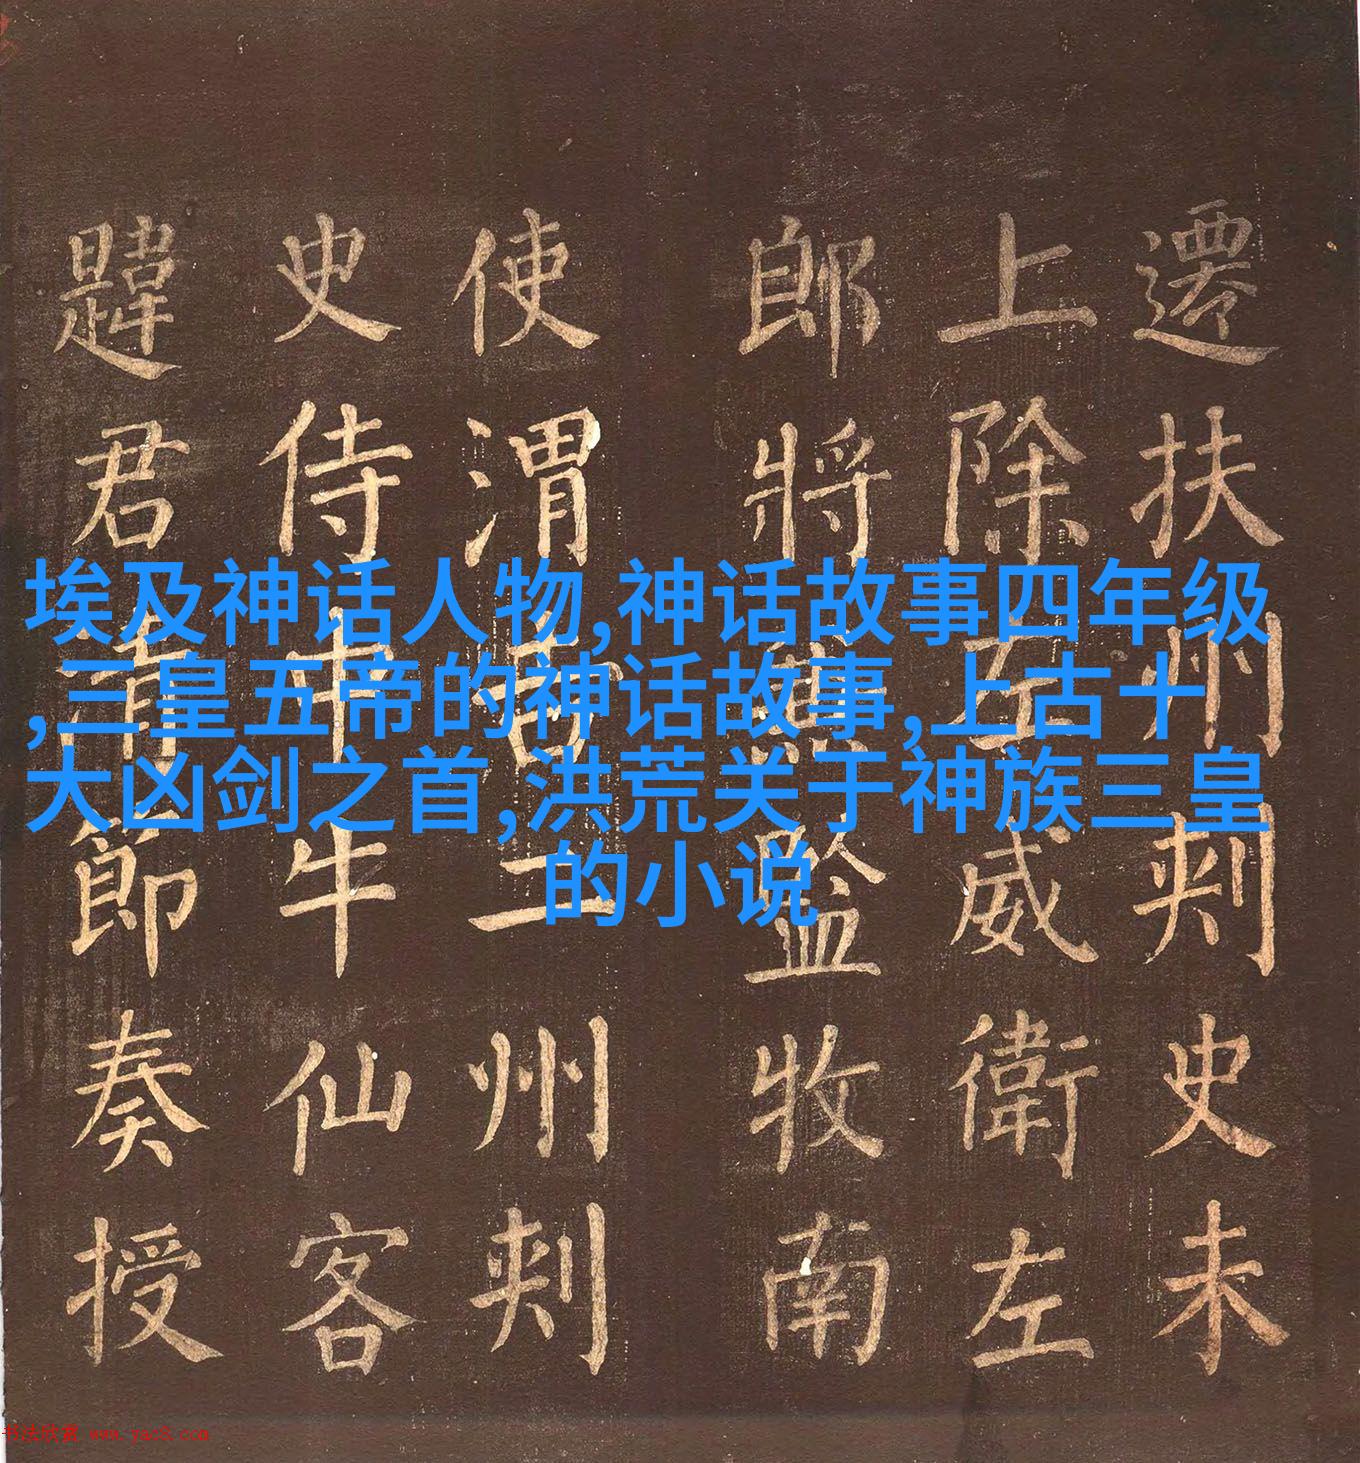 遷扶州刺史未
上除左威衛左
郎將兼監牧南
使渭吉二州刺
史侍中牛仙客
韙君清節奏授
埃及神话人物,神话故事四年级
,三皇五帝的神话故事,上古十
大凶剑之首,洪荒关于神族三皇
的小说
书法欣赏 www.yac8.com